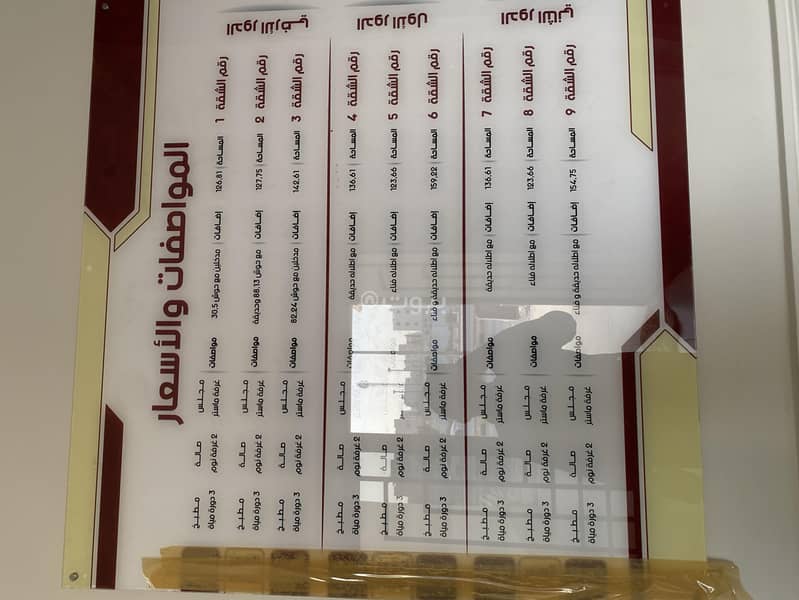 المواصفات والأسعار
الدور الأرضي
رقم الشقة 1 المساحة 126.81 إضافات مدخلين مع حوش 30.5 مواصفات مجلس صالة مطبخ
غرفة ماستر 2 غرفة نوم 3 دورة مياة
رقم الشقة 2 المساحة 127.75 إضافات مع حوش 88.13 وحديقة مواصفات مجلس صالة مطبخ
غرفة ماستر 2 غرفة نوم 3 دورة مياة
رقم الشقة 3 المساحة 142.61 إضافات مدخلين مع حوش 82.24 مواصفات مجلس صالة مطبخ
غرفة ماستر 2 غرفة نوم 3 دورة مياة
الدور الاول
رقم الشقة 4 المساحة 136.61 إضافات مع اطلاله حديقة مواصفات مجلس صالة مطبخ
غرفة ماستر 2 غرفة نوم 3 دورة مياة
رقم الشقة 5 المساحة 123.66 إضافات مع اطلاله فناء صالة مطبخ
2 غرفة نوم 3 دورة مياة
رقم الشقة 6 المساحة 159.22 إضافات مع اطلاله حديقة و فناء مواصفات مجلس صالة مطبخ
غرفة ماستر 2 غرفة نوم 3 دورة مياة
الدور الثاني
رقم الشقة 7 المساحة 136.61 إضافات مع اطلاله حديقة مواصفات مجلس صالة مطبخ
غرفة ماستر 2 غرفة نوم 3 دورة مياة
رقم الشقة 8 المساحة 123.66 إضافات مع اطلاله فناء مواصفات مجلس صالة مطبخ
غرفة ماستر 2 غرفة نوم 3 دورة مياة
رقم الشقة 9 المساحة 154.75 إضافات مع اطلاله حديقة و فناء مواصفات مجلس صالة مطبخ
غرفة ماستر 2 غرفة نوم 3 دورة مياة
بيوت